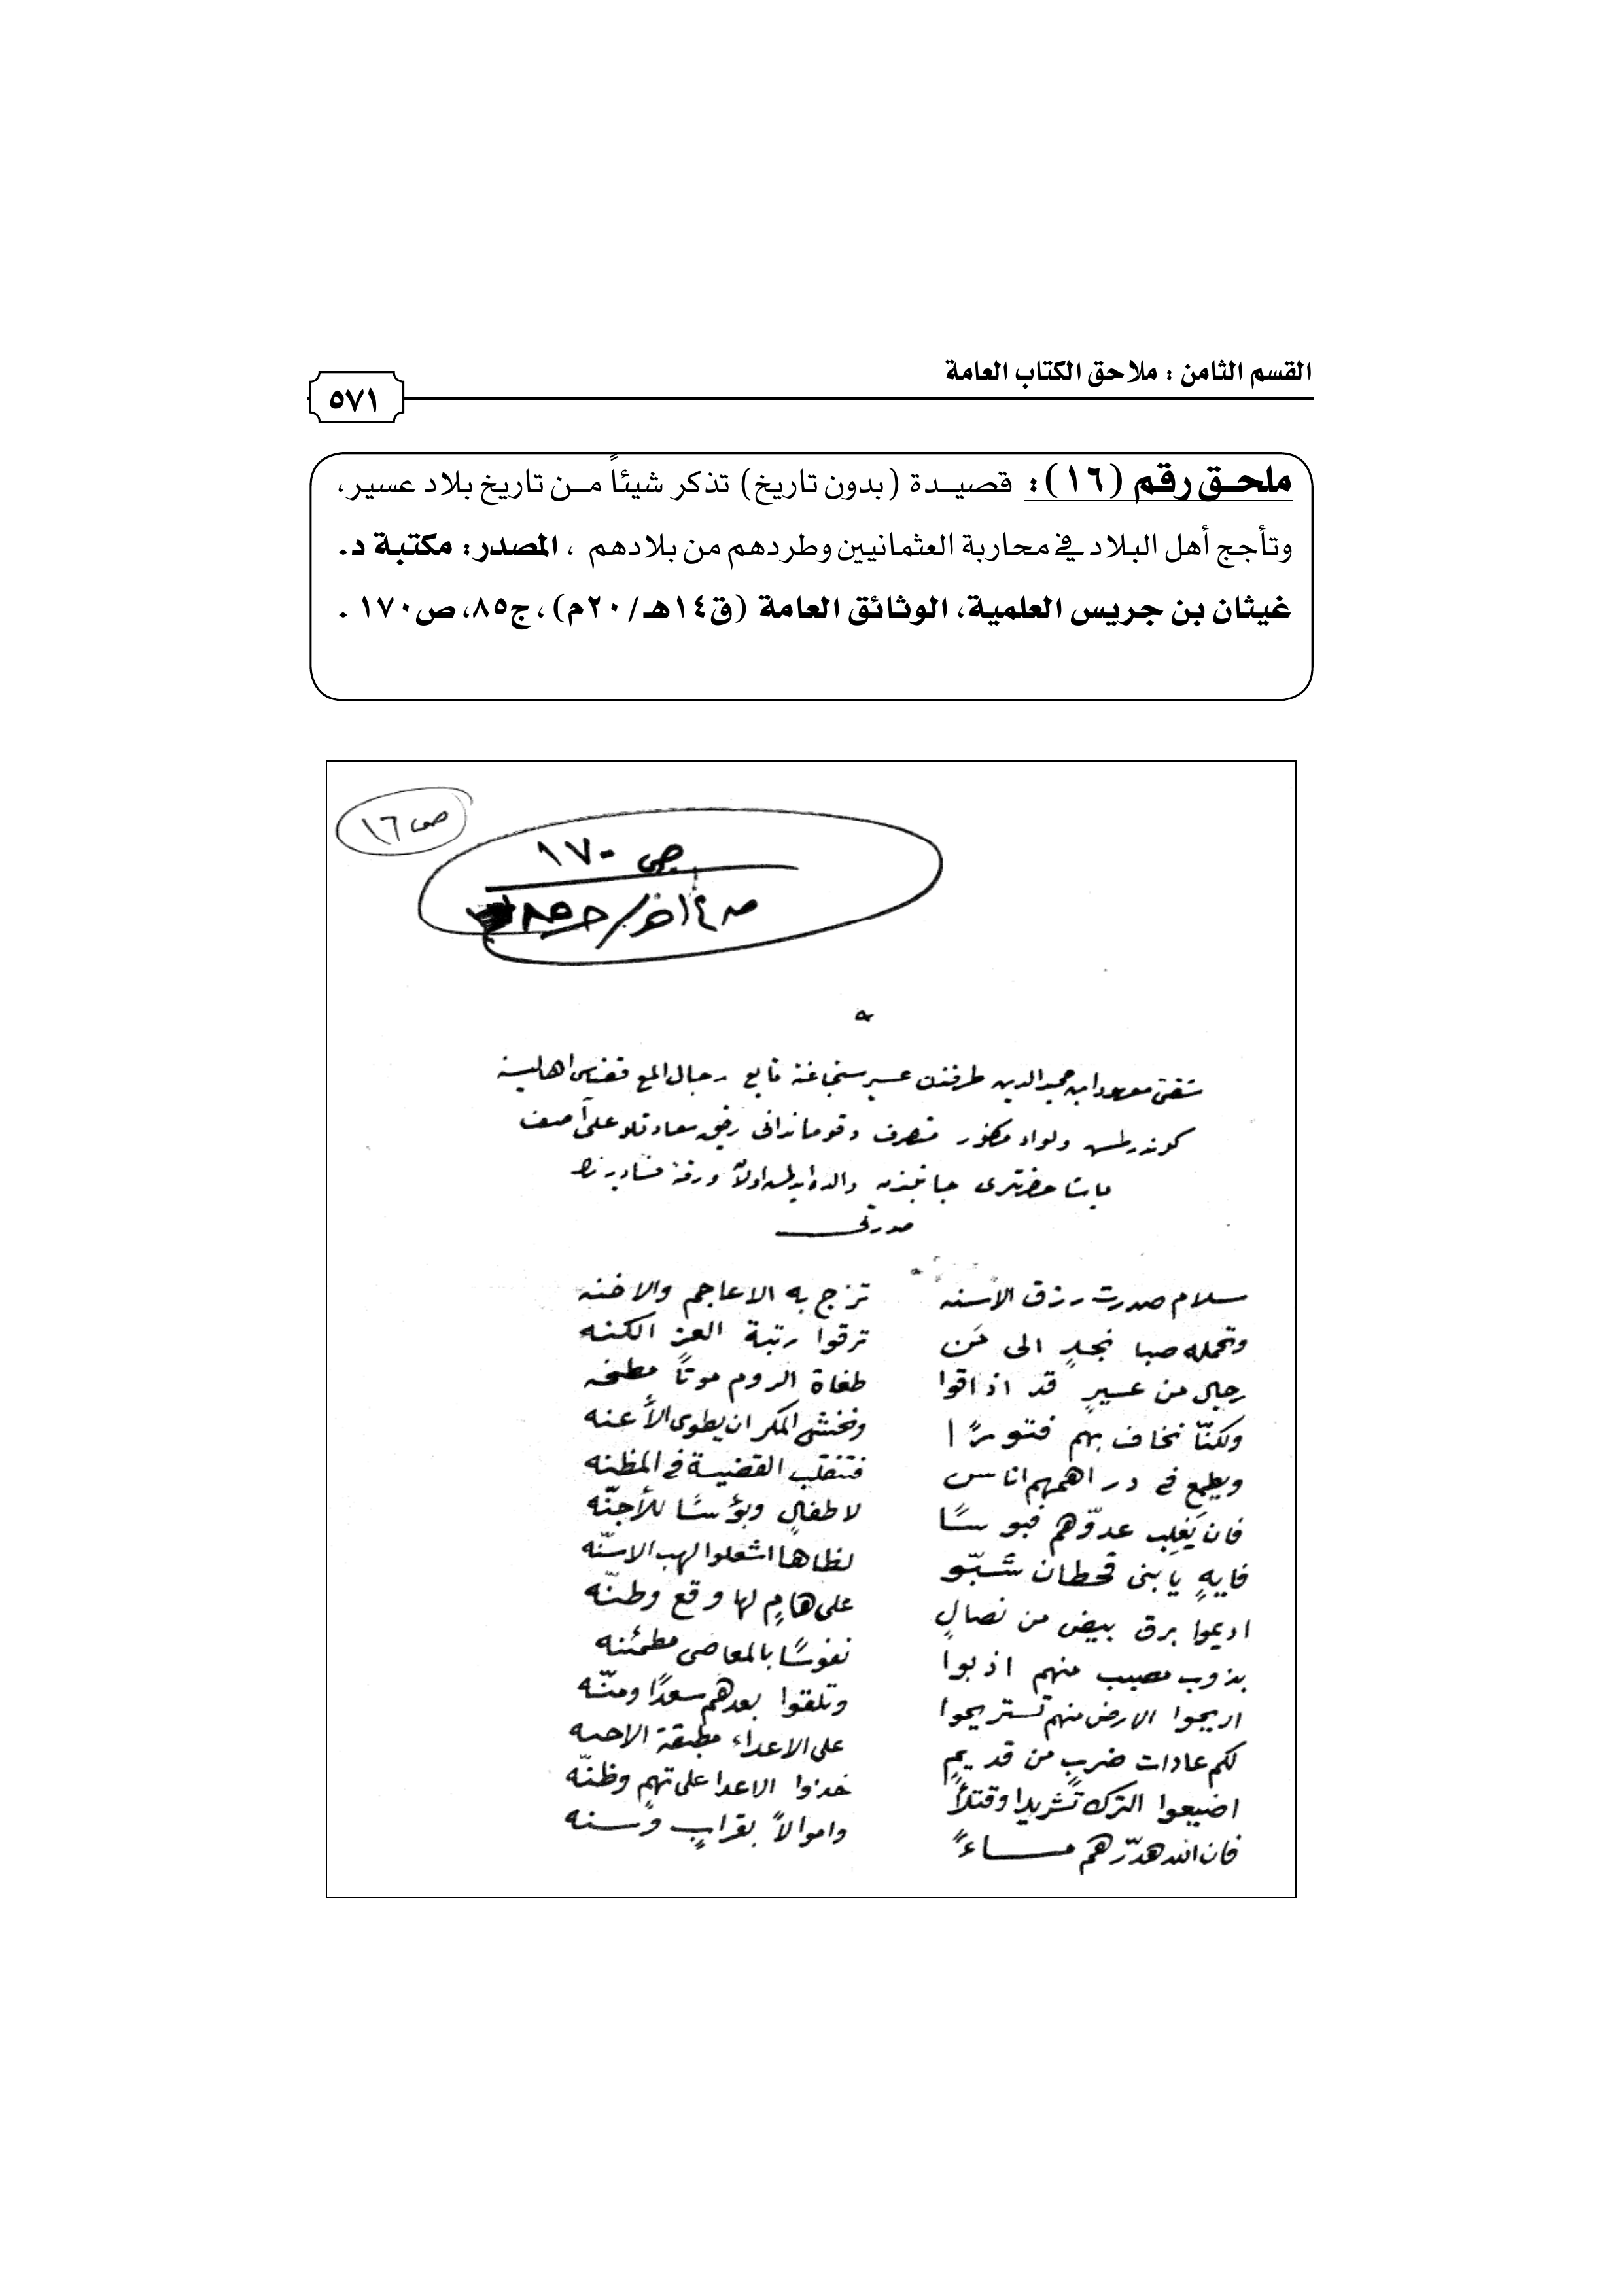 القسم الثامن : ملاحق الكتاب العامة
٥٧١
ملحـق رقم (١٦): قصيـدة (بدون تاريخ) تذكر شيئاً مـن تاريخ بلاد عسير،
وتأجج أهل البلاد في محاربة العثمانيين وطردهم من بلادهم ، المصدر: مكتبة د.
غيثان بن جريس العلمية، الوثائق العامة (ق١٤هـ/٢٠م)، ج٨٥، ص١٧٠ .
ص ١٦
ص ١٧٠
طرفندن عسير تابع رجال المع
متصرف وقومانداني
پاشا حضرتلري جانبندن ورقة
صورتي
سلام صدرت رزق الاسنه تزج به الاعاجم والاخنه
وتحمله صبا نجدٍ الى مَن ترقوا رتبة العز الكنه
رجال من عسيرٍ قد اذاقوا طغاة الروم موتاً
ولكنّا نخاف بهم فتورًا ونخشى المكر ان يطوى الأعنه
ويطمع في دراهمهم اناس فتنقلب القضية في المظنه
فان يَغلِب عدوّهم فبؤسًا لاطفالٍ وبؤسًا للأجنّه
فايهٍ يا بني قحطان شَبّو لظاها اشعلوا لهب الاسنّه
اديموا برق بيض من نصالٍ على هامٍ لها وقع وطنّه
بذوب مصبب منهم اذبوا نفوسًا بالمعاصى مطمئنه
اريحوا الارض منهم تستريحوا وتلقوا بعدهم سعدًا ومنّه
لكم عادات ضربٍ من قديمٍ على الاعداء مطبقة
اضيعوا الترك تشريدا وقتلاً خذوا الاعدا على تهمٍ وظنّه
فان الله هدّرهم مساءً واموالاً بقرابٍ وسنه